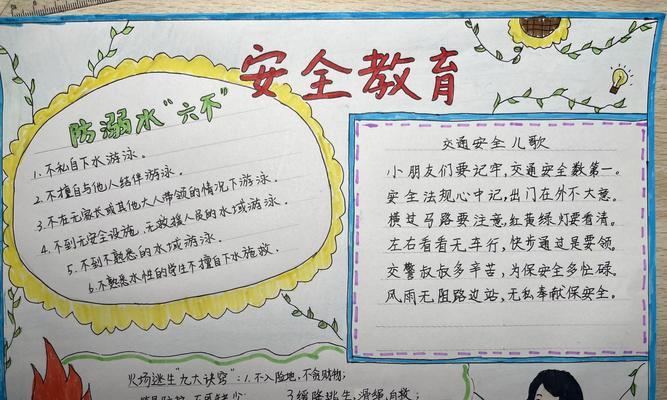 安全教育
防溺水“六不”
1.不私自下水游泳。
2.不擅自与他人结伴游泳。
3.不在无家长或其他大人带领的情况下游泳。
4.不到无安全设施、无救援人员的水域游泳。
5.不到不熟悉的水域游泳。
6.不熟悉水性的学生不擅自下水施救.
交通安全儿歌
小朋友们要记牢,交通安全数第一。
安全法规心中记,出门在外不大意。
横过马路要注意,红黄绿灯要看清。
左右看看无车行,快步通过是要领。
交警叔叔多辛苦,为保安全多忙碌。
风雨无阻路边站,无私奉献保安全。
火场逃生“九大诀窍”:1.不入险地,不贪财物;
3.缓降逃生,滑绳自救;